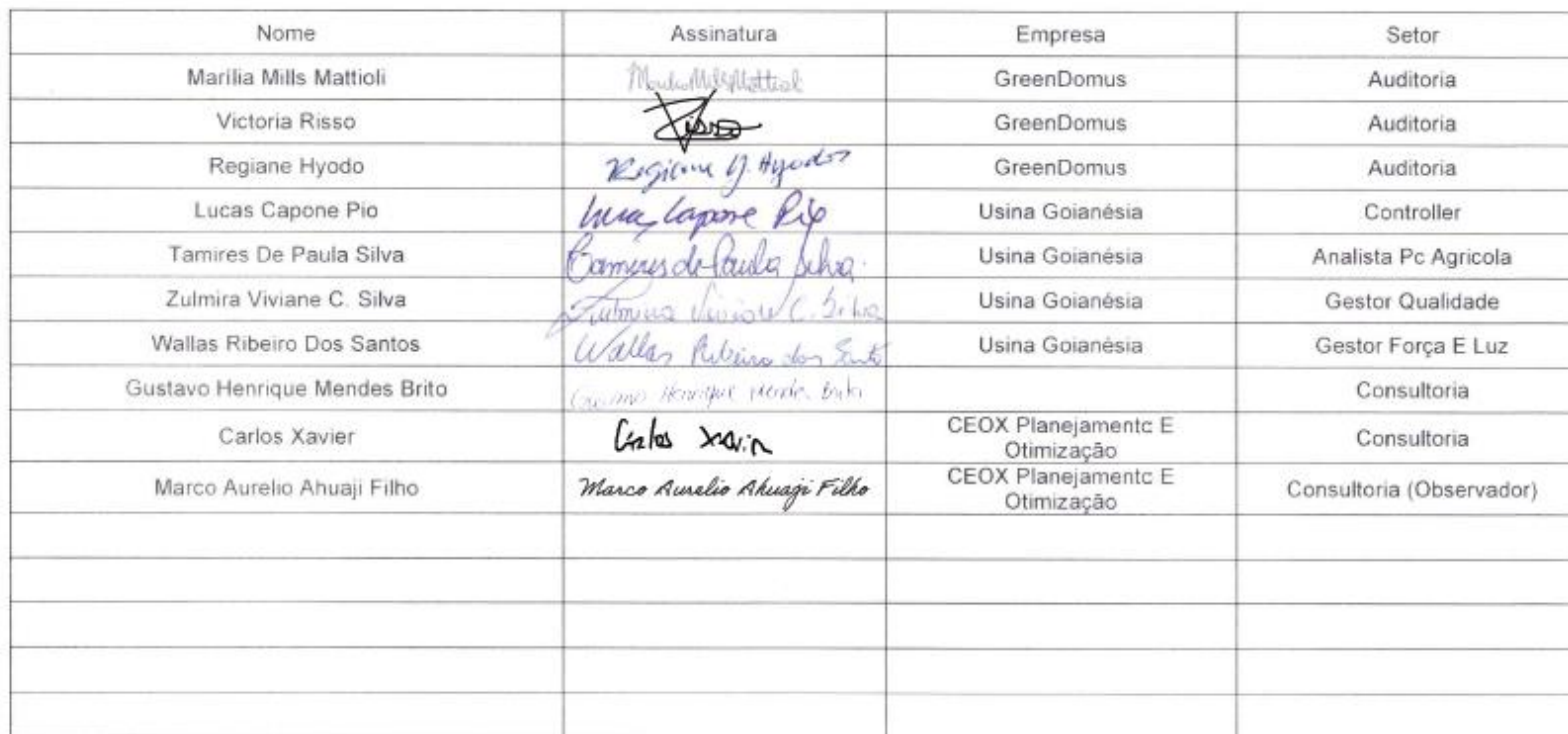 Nome Assinatura Empresa Setor
Marília Mills Mattioli Marília Mills Mattioli GreenDomus Auditoria
Victoria Risso Risso GreenDomus Auditoria
Regiane Hyodo Regiane Y. Hyodo GreenDomus Auditoria
Lucas Capone Pio Lucas Capone Pio Usina Goianésia Controller
Tamires De Paula Silva Tamires de Paula Silva Usina Goianésia Analista Pc Agricola
Zulmira Viviane C. Silva Zulmira Viviane C. Silva Usina Goianésia Gestor Qualidade
Wallas Ribeiro Dos Santos Wallas Ribeiro dos Santos Usina Goianésia Gestor Força E Luz
Gustavo Henrique Mendes Brito Gustavo Henrique Mendes Brito Consultoria
Carlos Xavier Carlos Xavier CEOX Planejamentc E
Otimização Consultoria
Marco Aurelio Ahuaji Filho Marco Aurelio Ahuaji Filho CEOX Planejamentc E
Otimização Consultoria (Observador)